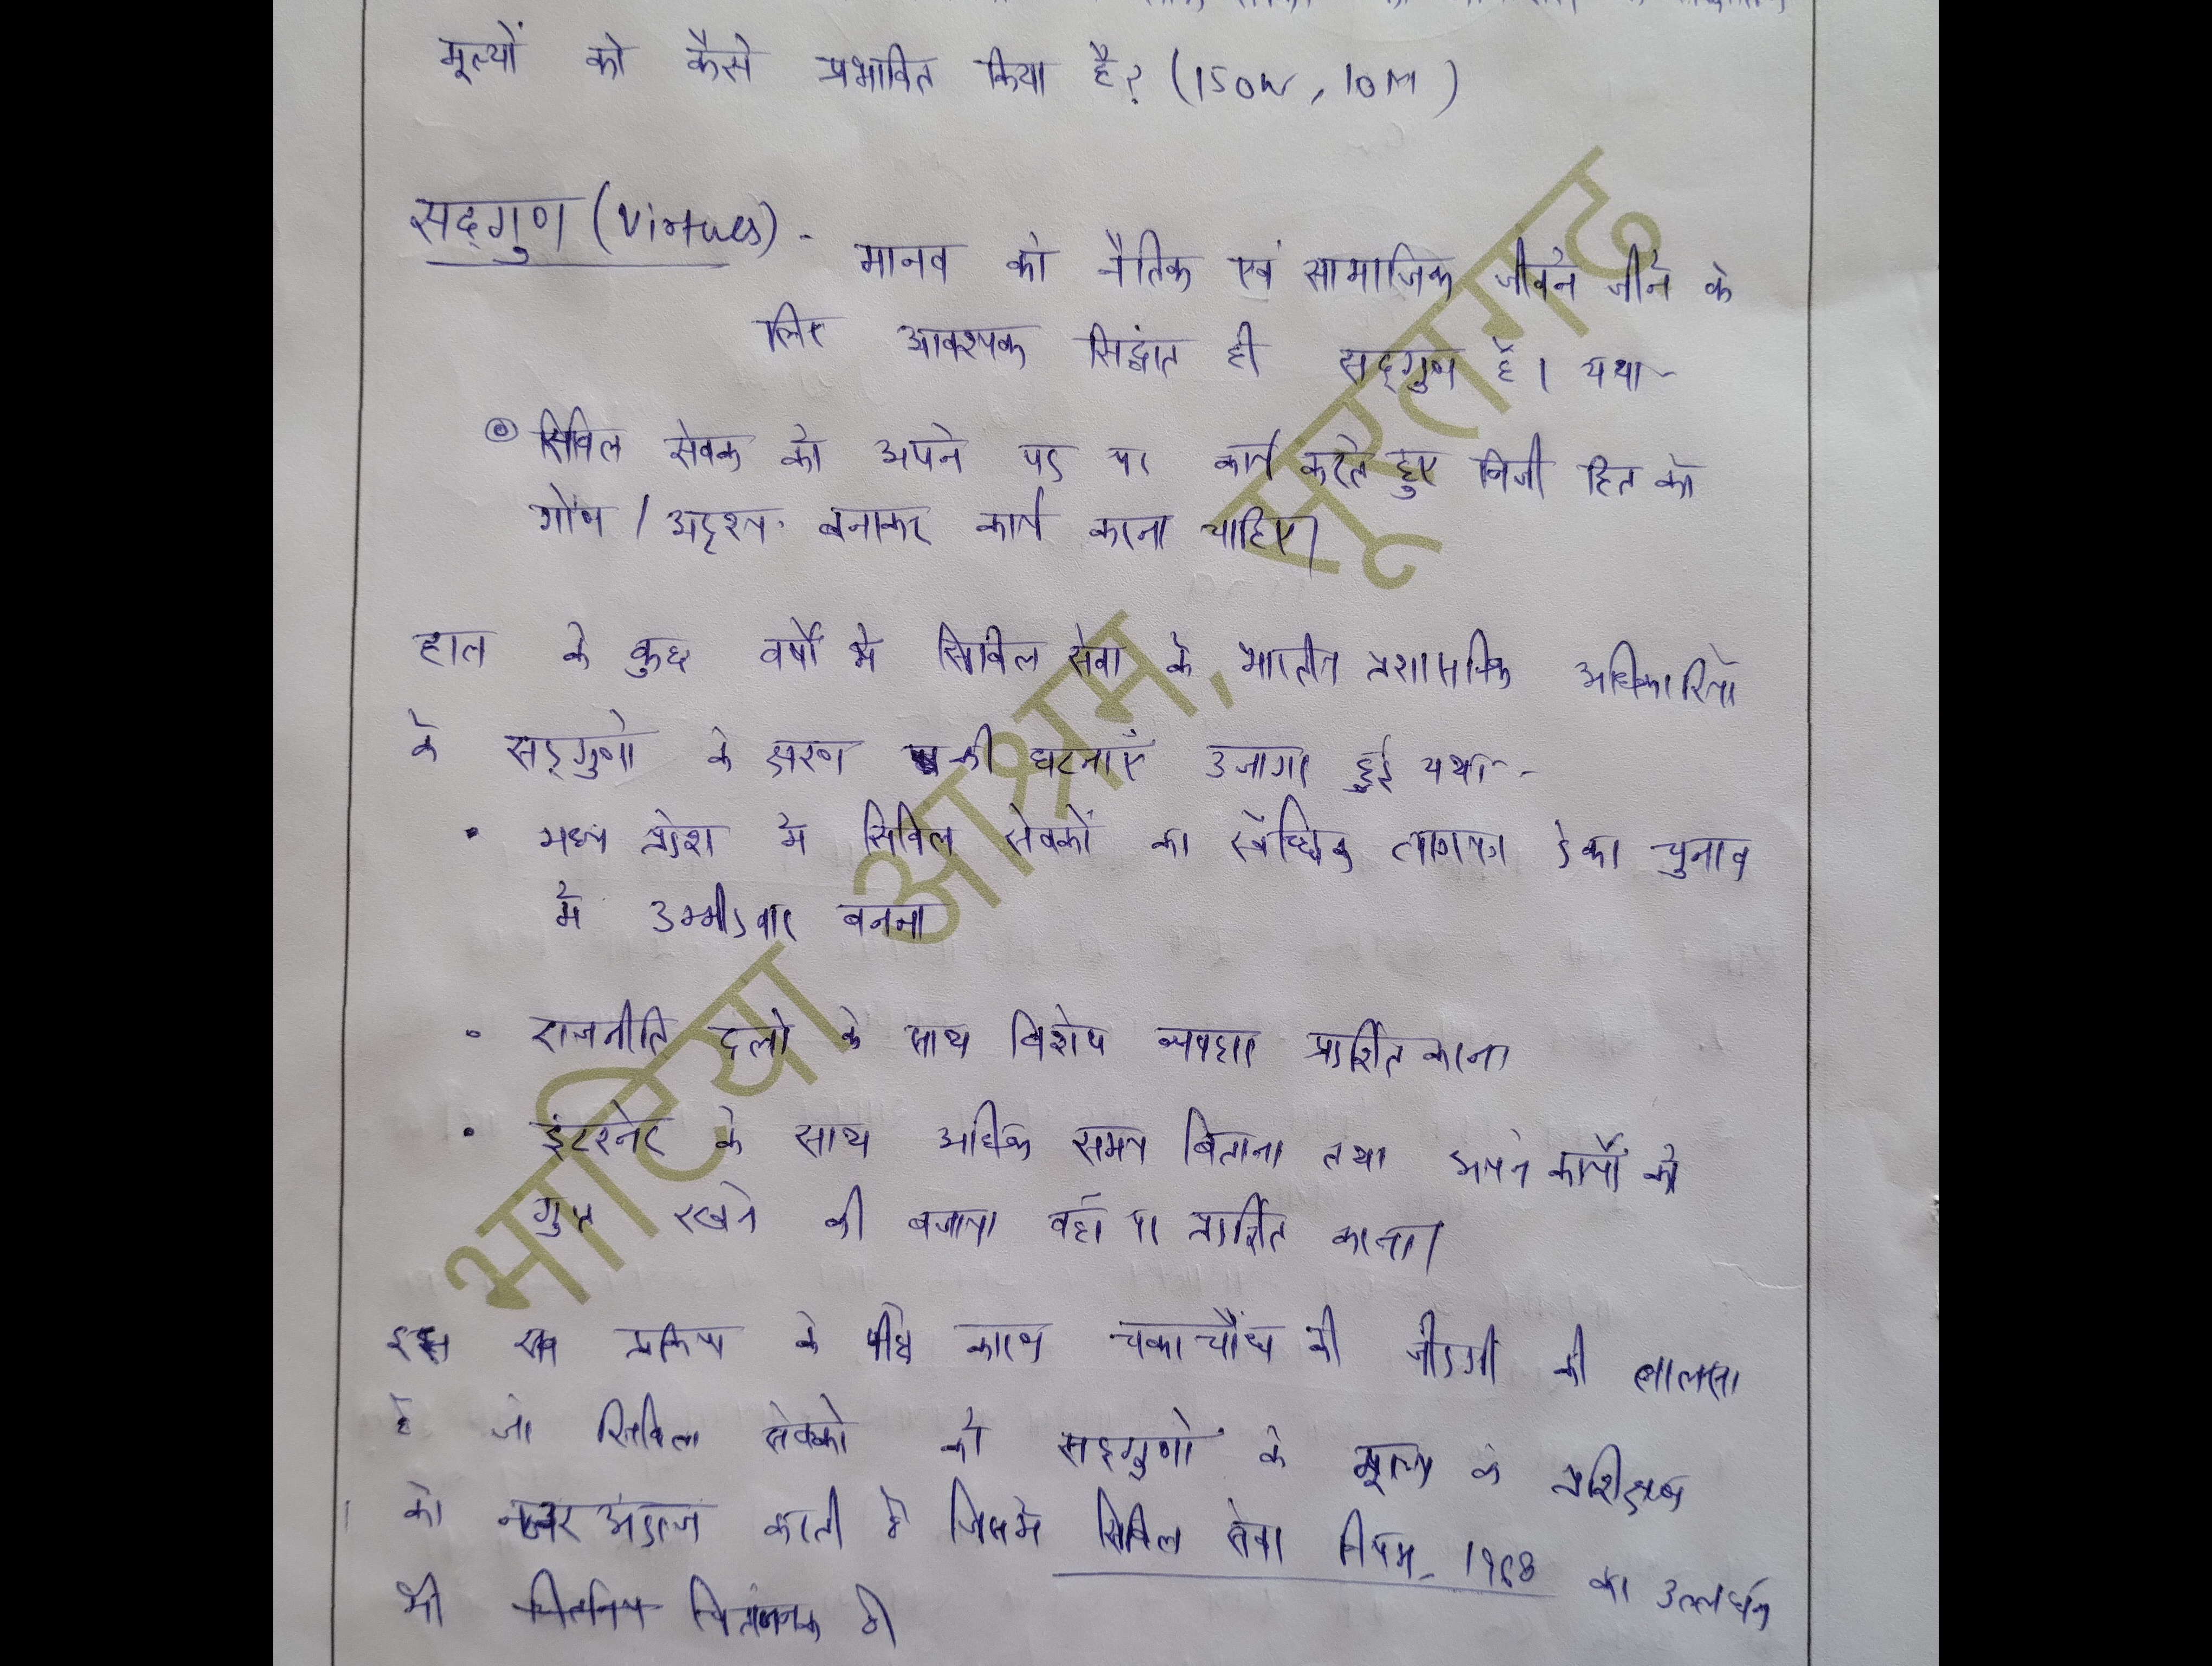 मूल्यों को कैसे प्रभावित किया है? (150W, 10M)
सद्गुण (Virtues) - मानव को नैतिक एवं सामाजिक जीवन जीने के
लिए आवश्यक सिद्धांत ही सद्गुण है। यथा-
सिविल सेवक को अपने पद पर कार्य करते हुए निजी हित को
गौण / अदृश्य बनाकर कार्य करना चाहिए।
हाल के कुछ वर्षों में सिविल सेवा के भारतीय प्रशासनिक अधिकारियों
के सद्गुणों के क्षरण की घटनाएँ उजागर हुई यथा-
• मध्य प्रदेश में सिविल सेवकों का स्वैच्छिक त्यागपत्र देकर चुनाव
में उम्मीदवार बनना
• राजनीति दलों के साथ विशेष व्यवहार प्रदर्शित करना
• इंटरनेट के साथ अधिक समय बिताना तथा अपने कार्यों को
गुप्त रखने की बजाय वहाँ पर प्रदर्शित करना।
इस प्रक्रिया के पीछे कारण चकाचौंध की जीदगी की लालसा
है जो सिविल सेवको को सद्गुणों के मूल्य के प्रशिक्षण
को नजर अंदाज करती है जिसमें सिविल सेवा नियम, 1968 का उल्लंघन
भी चिंताजनक है।
भाटिया आश्रम, सूरतगढ़